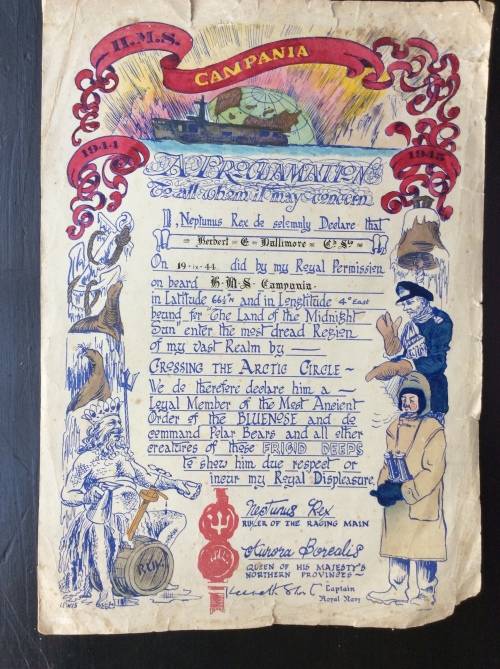 H.M.S.
CAMPANIA
1944
1945
A PROCLAMATION
To all whom it may concern
I, Neptunus Rex do solemnly Declare that
= Herbert = E = Dallimore =
On 19-ix-44 did by my Royal Permission
on board H.M.S. Campania
in Latitude 66½°N and in Longtitude 4° East
bound for "The Land of the Midnight
Sun" enter the most dread Region
of my vast Realm by —
CROSSING THE ARCTIC CIRCLE ~
We do therefore declare him a ~
Loyal Member of the Most Ancient
Order of the BLUENOSE and do
command Polar Bears and all other
creatures of those FRIGID DEEPS
to show him due respect or
incur my Royal Displeasure.
Neptunus Rex
RULER OF THE RAGING MAIN
Aurora Borealis
QUEEN OF HIS MAJESTY'S
NORTHERN PROVINCES ~
Captain
Royal Navy
RUM
LEWIS